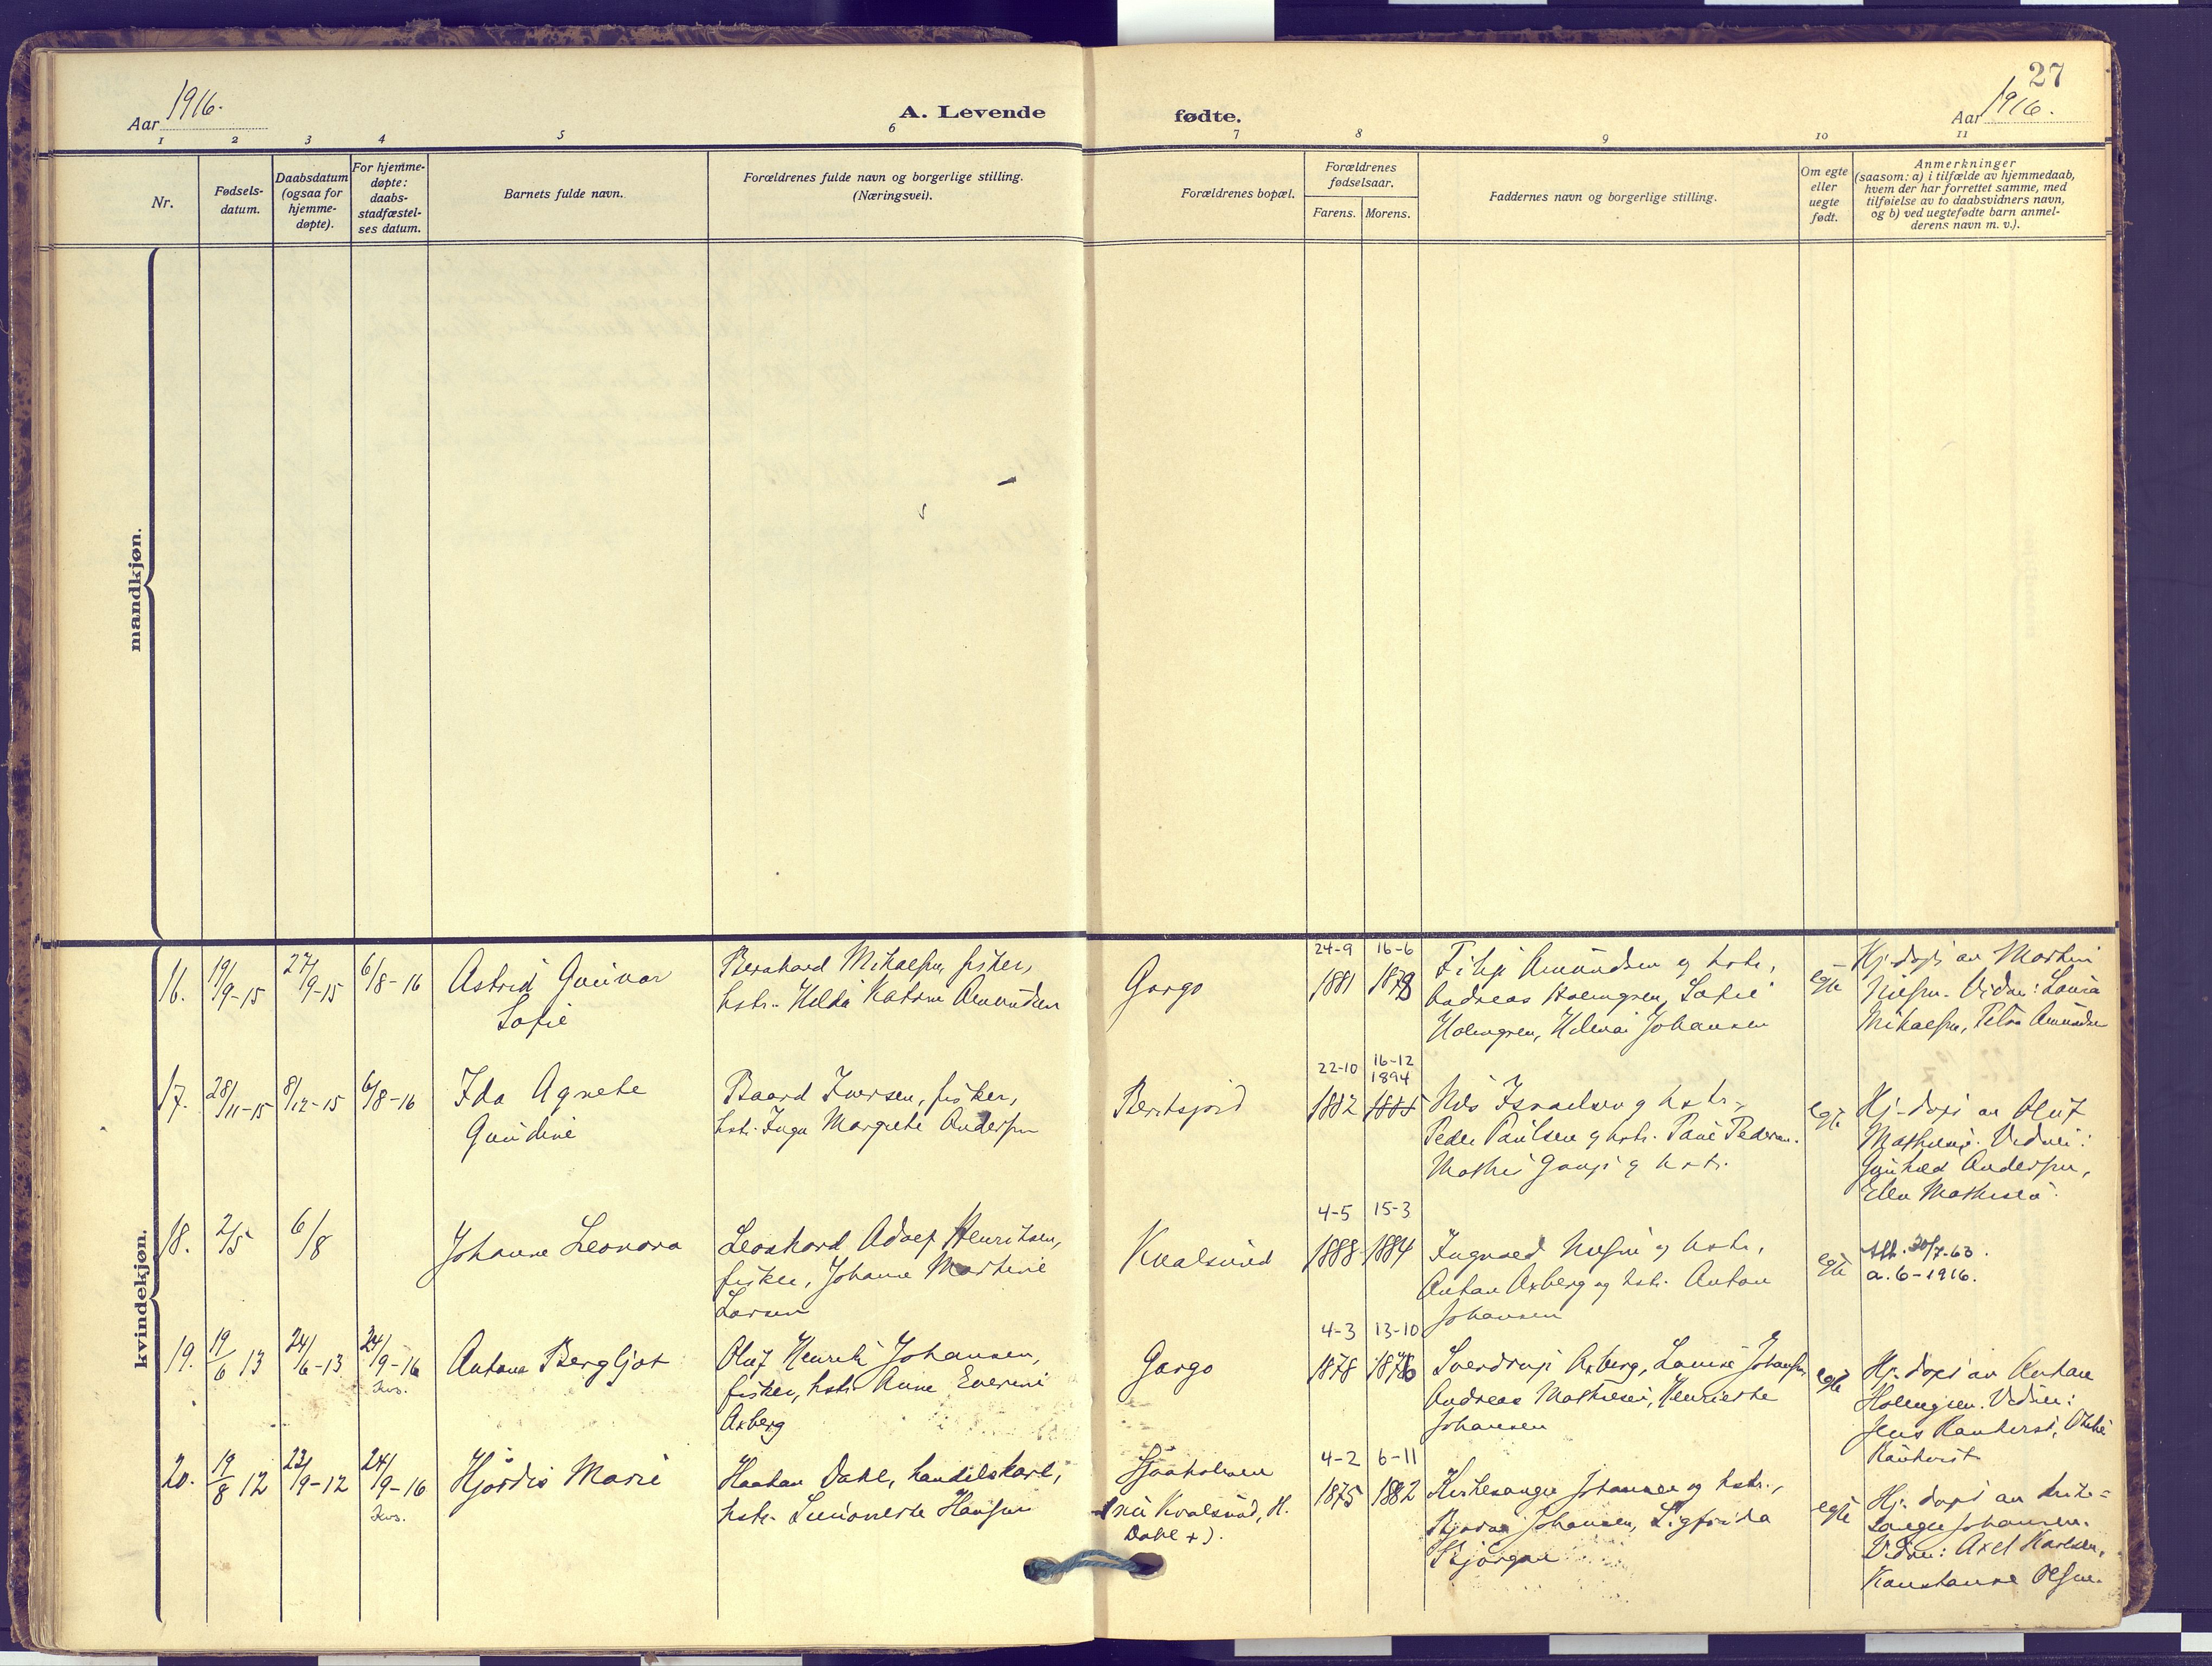 27
Aar 1916.
A. Levende
fødte.
Aar 1916.
1 2 3 4 5 6 7 8 9 10 11
Nr.
Fødsels-
datum.
Daabsdatum
(ogsaa for
hjemme-
døpte).
For hjemme-
døpte:
daabs-
stadfæstel-
ses datum.
Barnets fulde navn.
Forældrenes fulde navn og borgerlige stilling.
(Næringsvei).
Forældrenes bopæl.
Forældrenes
fødselsaar.
Farens. Morens.
Faddernes navn og borgerlige stilling.
Om egte
eller
uegte
født.
Anmerkninger
(saasom: a) i tilfælde av hjemmedaab,
hvem der har forrettet samme, med
tilføielse av to daabsvidners navn,
og b) ved uegtefødte barn anmel-
derens navn m. v.).
mandkjøn.
kvindekjøn.
16. 19/9-15 27/9-15 6/8-16
Astrid Gunvor
Sofie
Bernhard Mikaelsen, fisker,
hstr. Hilda Katrine Amundsen
Gargo
24-9 16-6
1881 1878
Filip Amundsen og hstr.,
Andreas Holmgren, Sofie
Holmgren, Johansen
egte
Hj.-døpt av Martin
Nielsen. Vidner: Laura
Mikaelsen, Petra Amundsen
17. 28/11-15 8/12-15 6/8-16
Ida Agnete
Gundine
Baard Iversen, fisker,
hstr. Inga Margrete Andersen
Beritsjord
22-10 16-12
1894
1882 1885
Nils Israelsen og hstr.,
Peder Paulsen og hstr. Pedersen.
Mathis og hstr.
egte
Hj.-døpt av Oluf
Mathisen. Vidner:
Gunhild Andersen,
Ellen Mathisen.
18. 2/5 6/8
Johanne Leonora
Leonhard Adolf Henriksen,
fisker, Johanne Martine
Larsen
Kvalsund
4-5 15-3
1888 1884
Ingvald Nilsen og hstr.,
Anton Axberg og hstr. Anton
Johansen
egte
Att. 30/7-63.
a. 6-1916.
19. 19/6 13 24/6-13 24/9-16
Kvs.
Antona Bergljot
Oluf Henrik Johansen,
fisker, hstr. Anne Everine
Axberg
Gargo
4-3 13-10
1878 1876
Sverdrup Axberg, Louise Johansen
Andreas Mathisen, Henriette
Johansen
egte
Hj.-døpt av Anton
Holmgren. Vidner:
Jens
20. 19/8 12 23/9-12 24/9-16
Kvs.
Hjørdis Marie
Haakon Dahl, handelskarl,
hstr. Simonette Hansen
Sjaaholmen
(nu Kvalsund, H.
Dahl +).
4-2 6-11
1875 1882
Kirkesanger Johansen og hstr.,
Johansen, Sigfrida
Bjørgan
egte
Hj. døpt av kirke-
sanger Johansen.
Vidner: Axel Karlsen,
Konstanse Olsen.